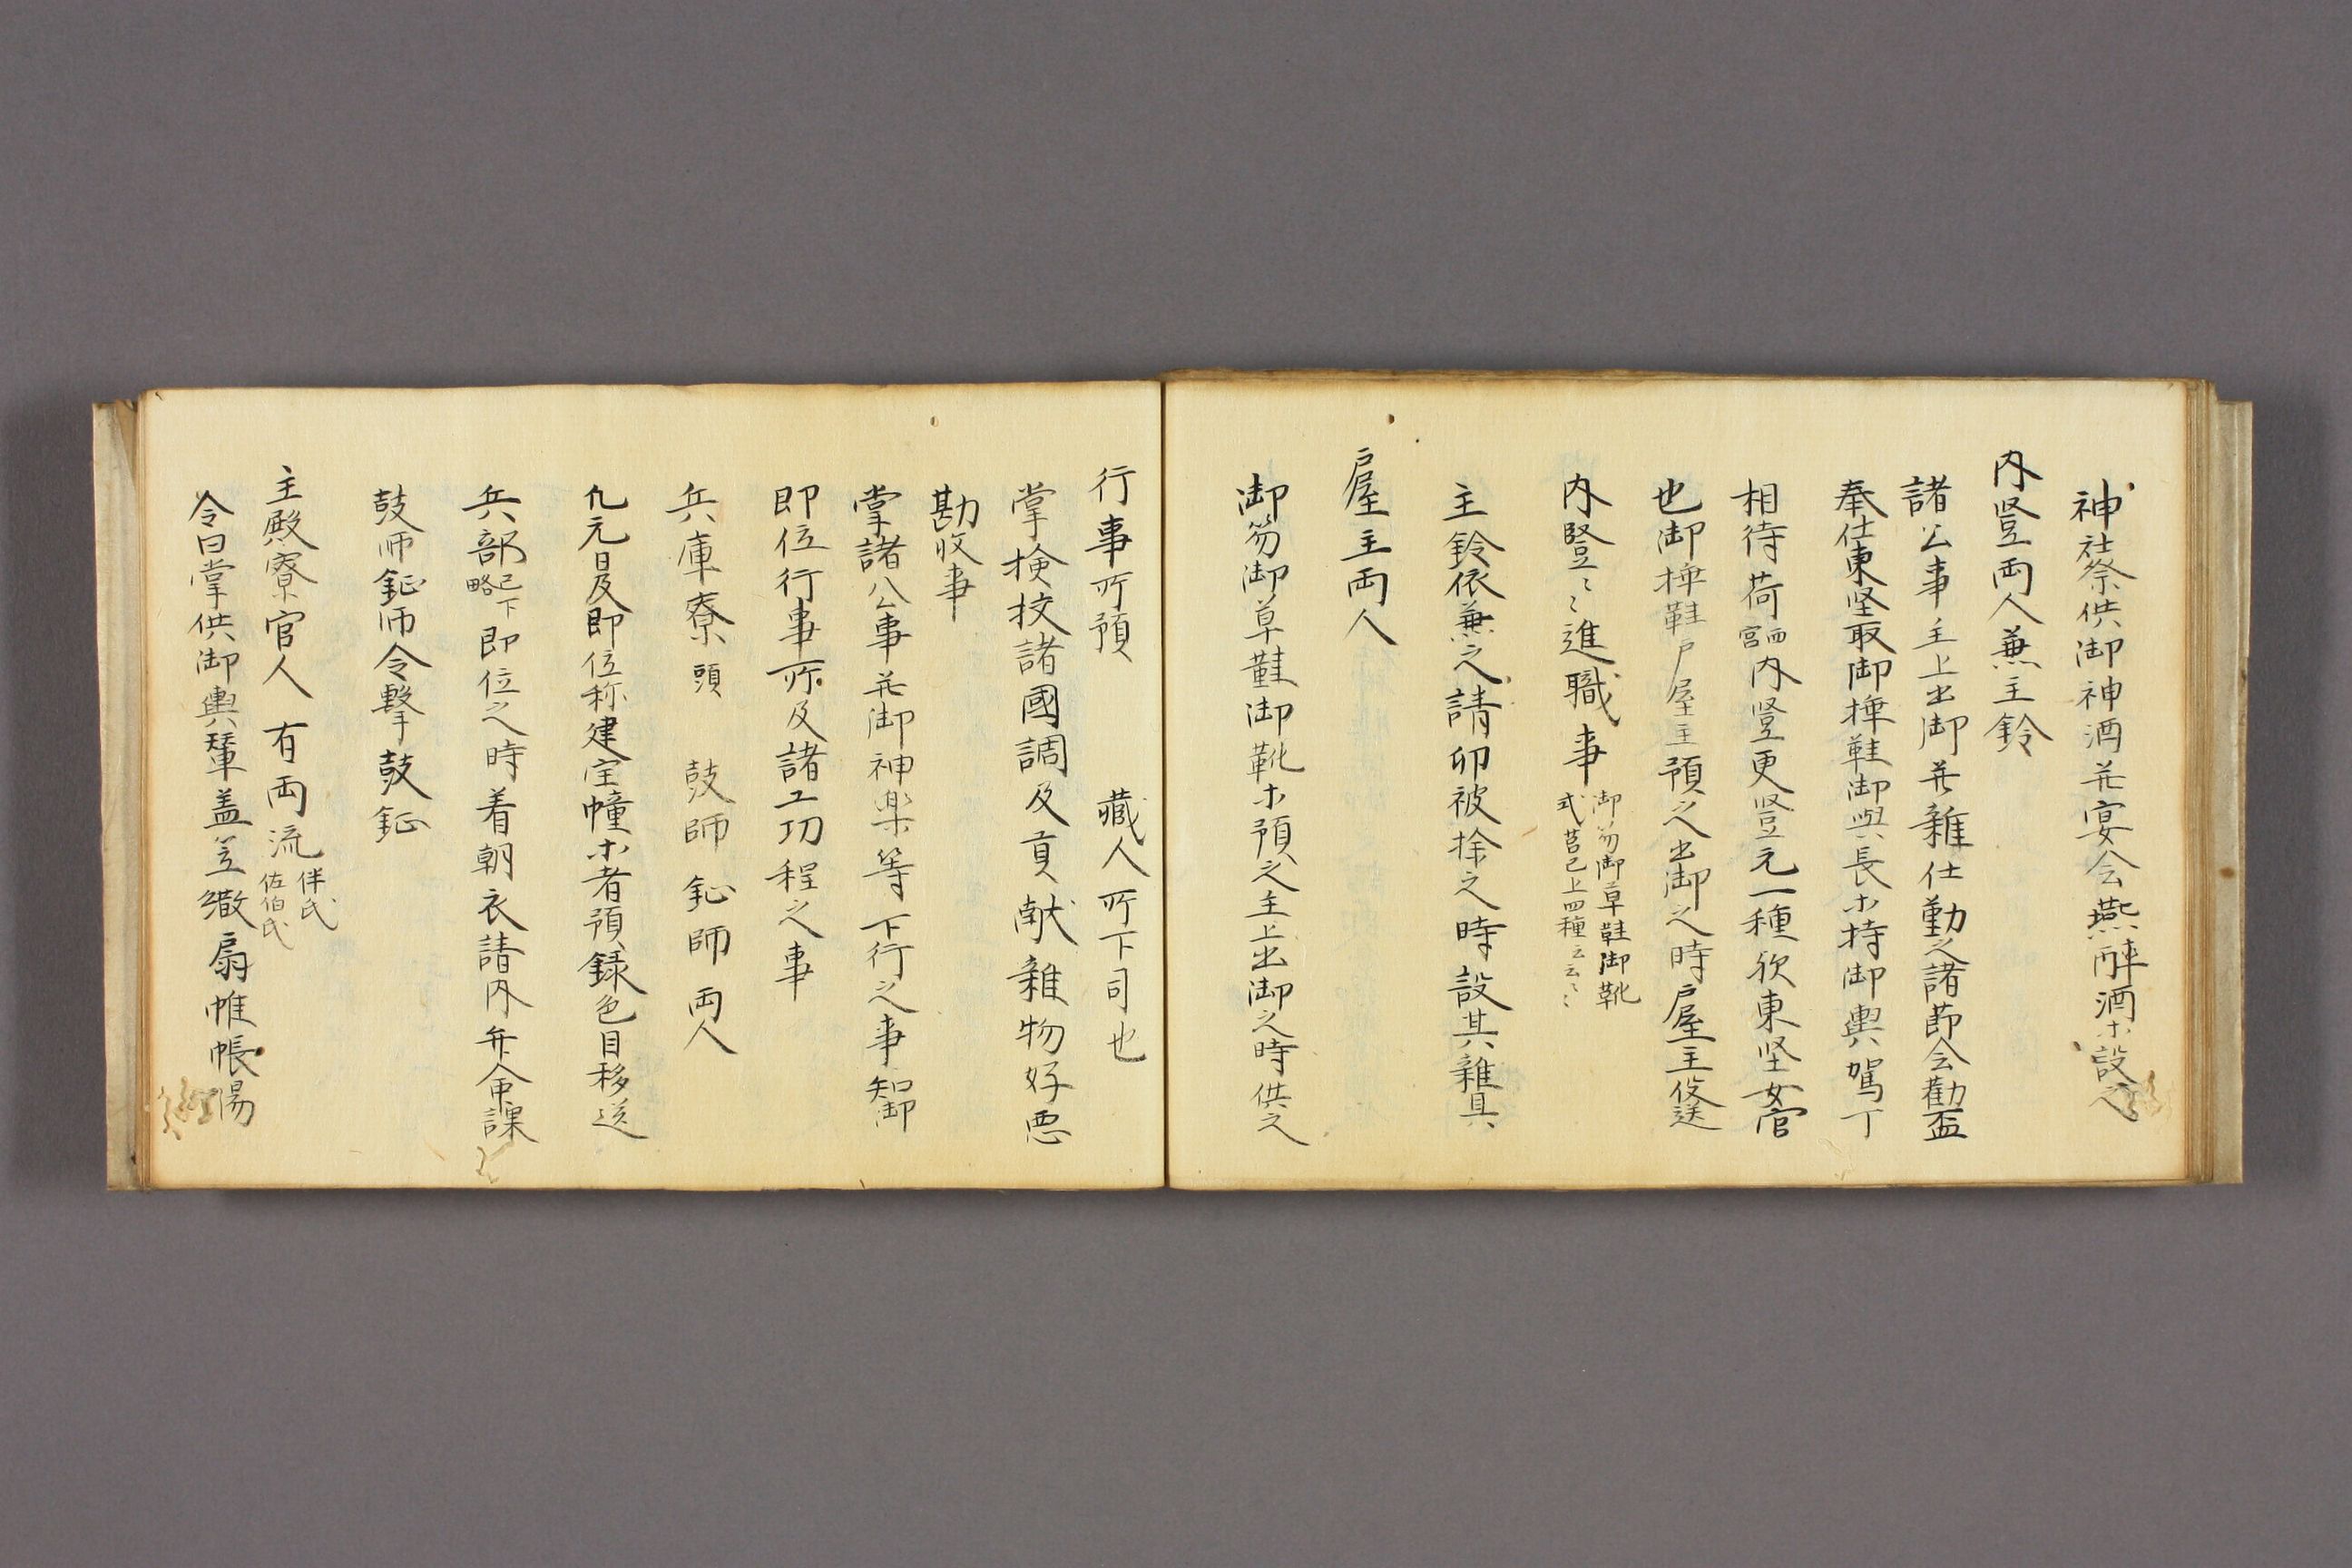 神社祭供御神酒并宴会燕醉酒ホ設之
内竪両人兼主鈴
諸公事主上出御并雑仕勤之諸節会勸盃
奉仕東竪取御挿鞋御輿長ホ持御輿駕丁
相待荷西宮内竪更竪元一種欤東竪女官
也御挿鞋戸屋主預之出御之時屋主伇送
内竪〻進職事御笏御草鞋御靴
式筥已上四種云云〻
主鈴依兼之請印被捺之時設其雑具
屋主両人
御笏御草鞋御靴ホ預之主上出御之時供之
行事所預 藏人所下司也
掌検挍諸國調及貢献雜物好悪
勘收事
掌諸公事并御神楽等下行之事知御
即位行事所及諸工功程之事
兵庫寮頭 鼓師 鉦師 両人
凢元日及即位称建宝幢ホ者預録色目移送
兵部已下略即位之時着朝衣請内弁命課
鼓师鉦师令擊鼓鉦
主殿寮官人 有両流伴氏佐伯氏
令曰掌供御輿輦盖笠繖扇帷帳湯